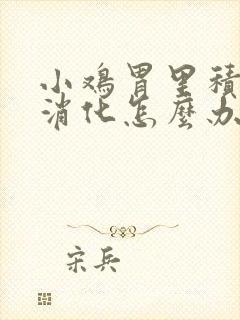 小鸡胃里积
消化怎麽办
宋兵